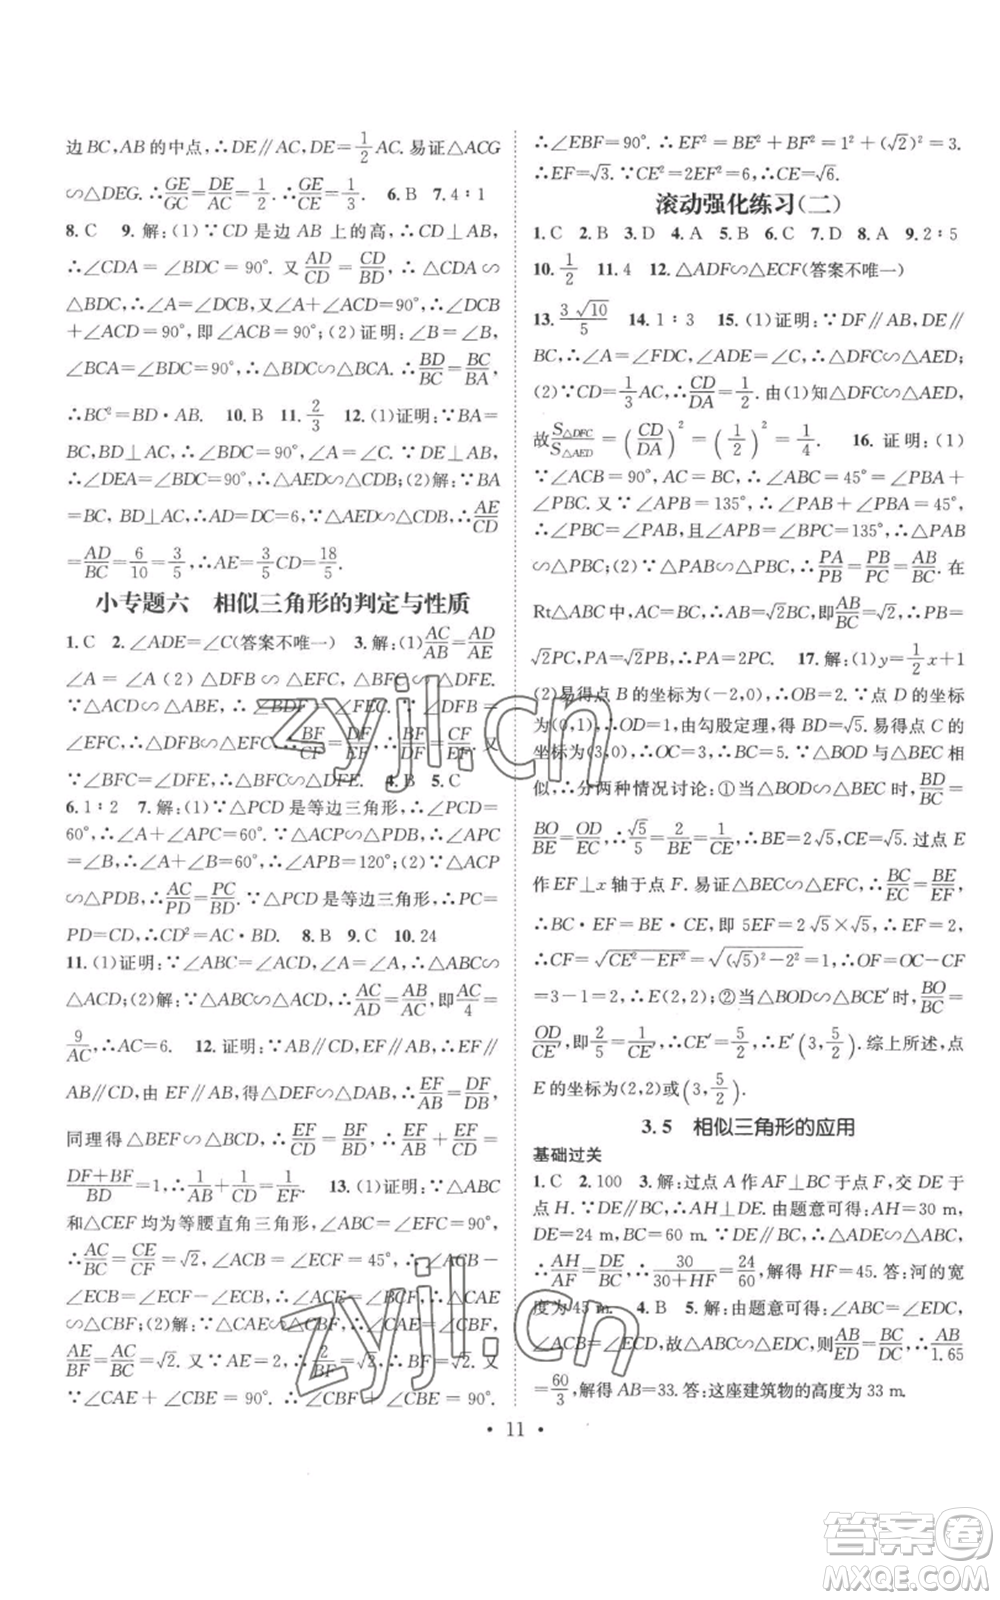 边BC,AB的中点,∴DE∥AC,DE=1/2AC.易证△ACG
∽△DEG.∴GE/GC=DE/AC=1/2.∴GE/CE=1/3. 6.B 7.4∶1
8.C 9.解:(1)∵CD是边AB上的高,∴CD⊥AB,
∴∠CDA=∠BDC=90°.又AD/CD=CD/BD,∴△CDA∽
△BDC,∴∠A=∠DCB,又∠A+∠ACD=90°,∴∠DCB
+∠ACD=90°,即∠ACB=90°;(2)证明:∠B=∠B,
∠BCA=∠BDC=90°,∴△BDC∽△BCA.∴BD/BC=BC/BA,
∴BC²=BD·AB. 10.B 11.2/3 12.(1)证明:∵BA=
BC,BD⊥AC,∴∠BDC=90°,∠A=∠C.∵DE⊥AB,
∴∠DEA=∠BDC=90°,∴△AED∽△CDB;(2)解:∵BA
=BC,BD⊥AC,∴AD=DC=6,∵△AED∽△CDB,∴AE/CD
=AD/BC=6/10=3/5,∴AE=3/5CD=18/5.
小专题六 相似三角形的判定与性质
1.C 2.∠ADE=∠C(答案不唯一) 3.解:(1)AC/AB=AD/AE
∠A=∠A(2)△DFB∽△EFC,△BFC∽△DFE.
∵△ACD∽△ABE,∴∠BDF=∠FEC.∵∠DFB=
∠EFC,∴△DFB∽△EFC.∴BF/CF=DF/EF,∴BF/DF=CF/EF.又
∵∠BFC=∠DFE,∴△BFC∽△DFE. 4.B 5.C
6.1∶2 7.解:(1)∵△PCD是等边三角形,∴∠PCD=
60°,∴∠A+∠APC=60°.∵△ACP∽△PDB,∴∠APC
=∠B,∴∠A+∠B=60°,∴∠APB=120°;(2)∵△ACP
∽△PDB,∴AC/PD=PC/BD.∵△PCD是等边三角形,∴PC=
PD=CD,∴CD²=AC·BD. 8.B 9.C 10.24
11.(1)证明:∵∠ABC=∠ACD,∠A=∠A,∴△ABC∽
△ACD;(2)解:∵△ABC∽△ACD,∴AC/AD=AB/AC,即AC/4=
9/AC,∴AC=6. 12.证明:∵AB∥CD,EF∥AB,∴EF∥
CD,由EF∥AB,得△DEF∽△DAB,∴EF/AB=DF/DB,
同理得△BEF∽△BCD,∴EF/CD=BF/BD,∴EF/AB+EF/CD=
DF+BF/BD=1,∴1/AB+1/CD=1/EF. 13.(1)证明:∵△ABC
和△CEF均为等腰直角三角形,∴∠ABC=∠EFC=90°,
∴AC/BC=CE/CF=√2,∠ACB=∠ECF=45°,∴∠ACB-
∠ECB=∠ECF-∠ECB,∴∠ACE=∠BCF,∴△CAE
∽△CBF;(2)解:∵△CAE∽△CBF,∴∠CAE=∠CBF,
AE/BF=AC/BC=√2.又∵AE=2,∴2/BF=√2,∴BF=√2.又
∵∠CAE+∠CBE=90°,∴∠CBF+∠CBE=90°,
∴∠EBF=90°.∴EF²=BE²+BF²=1²+(√2)²=3.
∴EF=√3.∵CE²=2EF²=6,∴CE=√6.
滚动强化练习(二)
1.C 2.B 3.D 4.A 5.B 6.C 7.D 8.A 9.2∶5
10.1/2 11.4 12.△ADF∽△ECF(答案不唯一)
13.3√10/5 14.1∶3 15.(1)证明:∵DF∥AB,DE∥
BC,∴∠A=∠FDC,∠ADE=∠C,∴△DFC∽△AED;
(2)∵CD=1/3AC,∴CD/DA=1/2.由(1)知△DFC∽△AED,
故S△DFC/S△AED=(CD/DA)²=(1/2)²=1/4. 16.证明:(1)
∵∠ACB=90°,AC=BC,∴∠ABC=45°=∠PBA+
∠PBC.又∵∠APB=135°,∴∠PAB+∠PBA=45°,
∴∠PBC=∠PAB,且∠APB=∠BPC=135°,∴△PAB
∽△PBC;(2)∵△PAB∽△PBC,∴PA/PB=PB/PC=AB/BC.在
Rt△ABC中,AC=BC,∴AB/BC=√2,∴PB=
√2PC,PA=√2PB.∴PA=2PC. 17.解:(1)y=1/2x+1
(2)易得点B的坐标为(-2,0),∴OB=2.∵点D的坐标
为(0,1),∴OD=1,由勾股定理,得BD=√5.易得点C的
坐标为(3,0),∴OC=3,∴BC=5.∵△BOD与△BEC相
似,∴分两种情况讨论:①当△BOD∽△BEC时,BD/BC=
BO/BE=OD/EC,∴√5/5=2/BE=1/CE,∴BE=2√5,CE=√5.过点E
作EF⊥x轴于点F.易证△BEC∽△EFC,∴BC/EC=BE/EF,
∴BC·EF=BE·CE,即5EF=2√5×√5,∴EF=2,
∴CF=√CE²-EF²=√(√5)²-2²=1,∴OF=OC-CF
=3-1=2,∴E(2,2);②当△BOD∽△BCE′时,BO/BC=
OD/CE′,即2/5=1/CE′,∴CE′=5/2,∴E′(3,5/2).综上所述,点
E的坐标为(2,2)或(3,5/2).
3.5 相似三角形的应用
基础过关
1.C 2.100 3.解:过点A作AF⊥BC于点F,交DE于
点H.∵DE∥BC,∴AH⊥DE.由题意可得:AH=30 m,
DE=24 m,BC=60 m.∵DE∥BC,∴△ADE∽△ABC,
∴AH/AF=DE/BC,∴30/30+HF=24/60,解得HF=45.答:河的宽
度为45 m. 4.B 5.解:由题意可得:∠ABC=∠EDC,
∠ACB=∠ECD,故△ABC∽△EDC,则AB/ED=BC/DC,∴AB/1.65
=60/3,解得AB=33.答:这座建筑物的高度为33 m.
·11·
zyjl.cn
zyjl.cn
答案圈
MXQE.COM